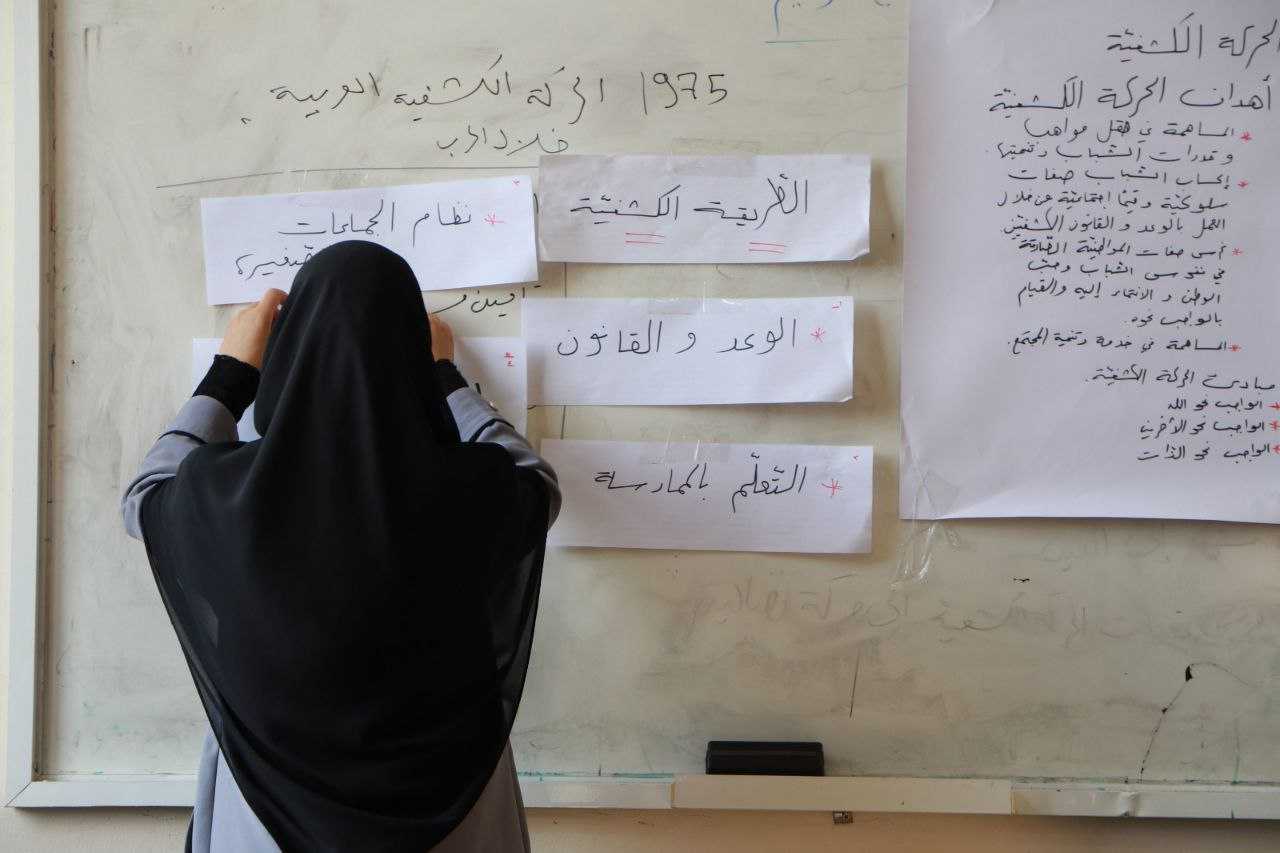 1975 الحركة الكشفية العربية
خلال الحرب
الطّريقة الكشفيّة
* الوعد و القانون
* التّعلّم بالممارسة
* نظام الجماعات
الصّغيرة
الحركة الكشفيّة
أهداف الحركة الكشفيّة
* المساهمة في صقل مواهب
و قدرات الشباب و تنميتها.
* إكساب الشباب صفات
سلوكيّة وقيمًا اجتماعيّة من خلال
العمل بالوعد و القانون الكشفيّين
* غرس صفات المواطنيّة الصّادقة
في نفوس الشباب وحبّ
الوطن و الانتماء إليه والقيام
بالواجب نحوه.
* المساهمة في خدمة وتنمية المجتمع.
مبادئ الحركة الكشفيّة.
* الواجب نحو الله
* الواجب نحو الآخرين
* الواجب نحو الذات